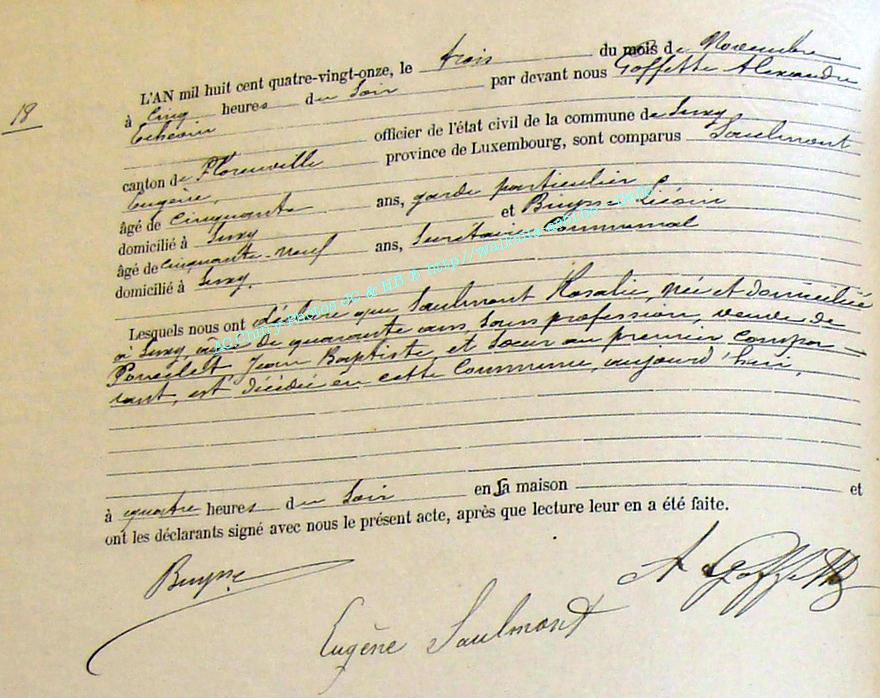 18
L'AN mil huit cent quatre-vingt-onze, le trois du mois de Novembre
à cinq heures du soir par devant nous Goffette Alexandre
Echevin officier de l'état civil de la commune de Suxy
canton de Florenville province de Luxembourg, sont comparus Saulmont
Eugène,
âgé de cinquante ans, garde particulier
domicilié à Suxy et Buysse
âgé de cinquante-neuf ans, Secrétaire Communal
domicilié à Suxy.
Lesquels nous ont déclaré que Saulmont Rosalie, née et domiciliée
à Suxy, âgée de quarante ans, sans profession, veuve de
Poncelet Jean Baptiste, et soeur au premier compa-
rant, est décédée en cette Commune, aujourd'hui,
à quatre heures du soir en sa maison et
ont les déclarants signé avec nous le présent acte, après que lecture leur en a été faite.
Buysse
A Goffette
Eugène Saulmont